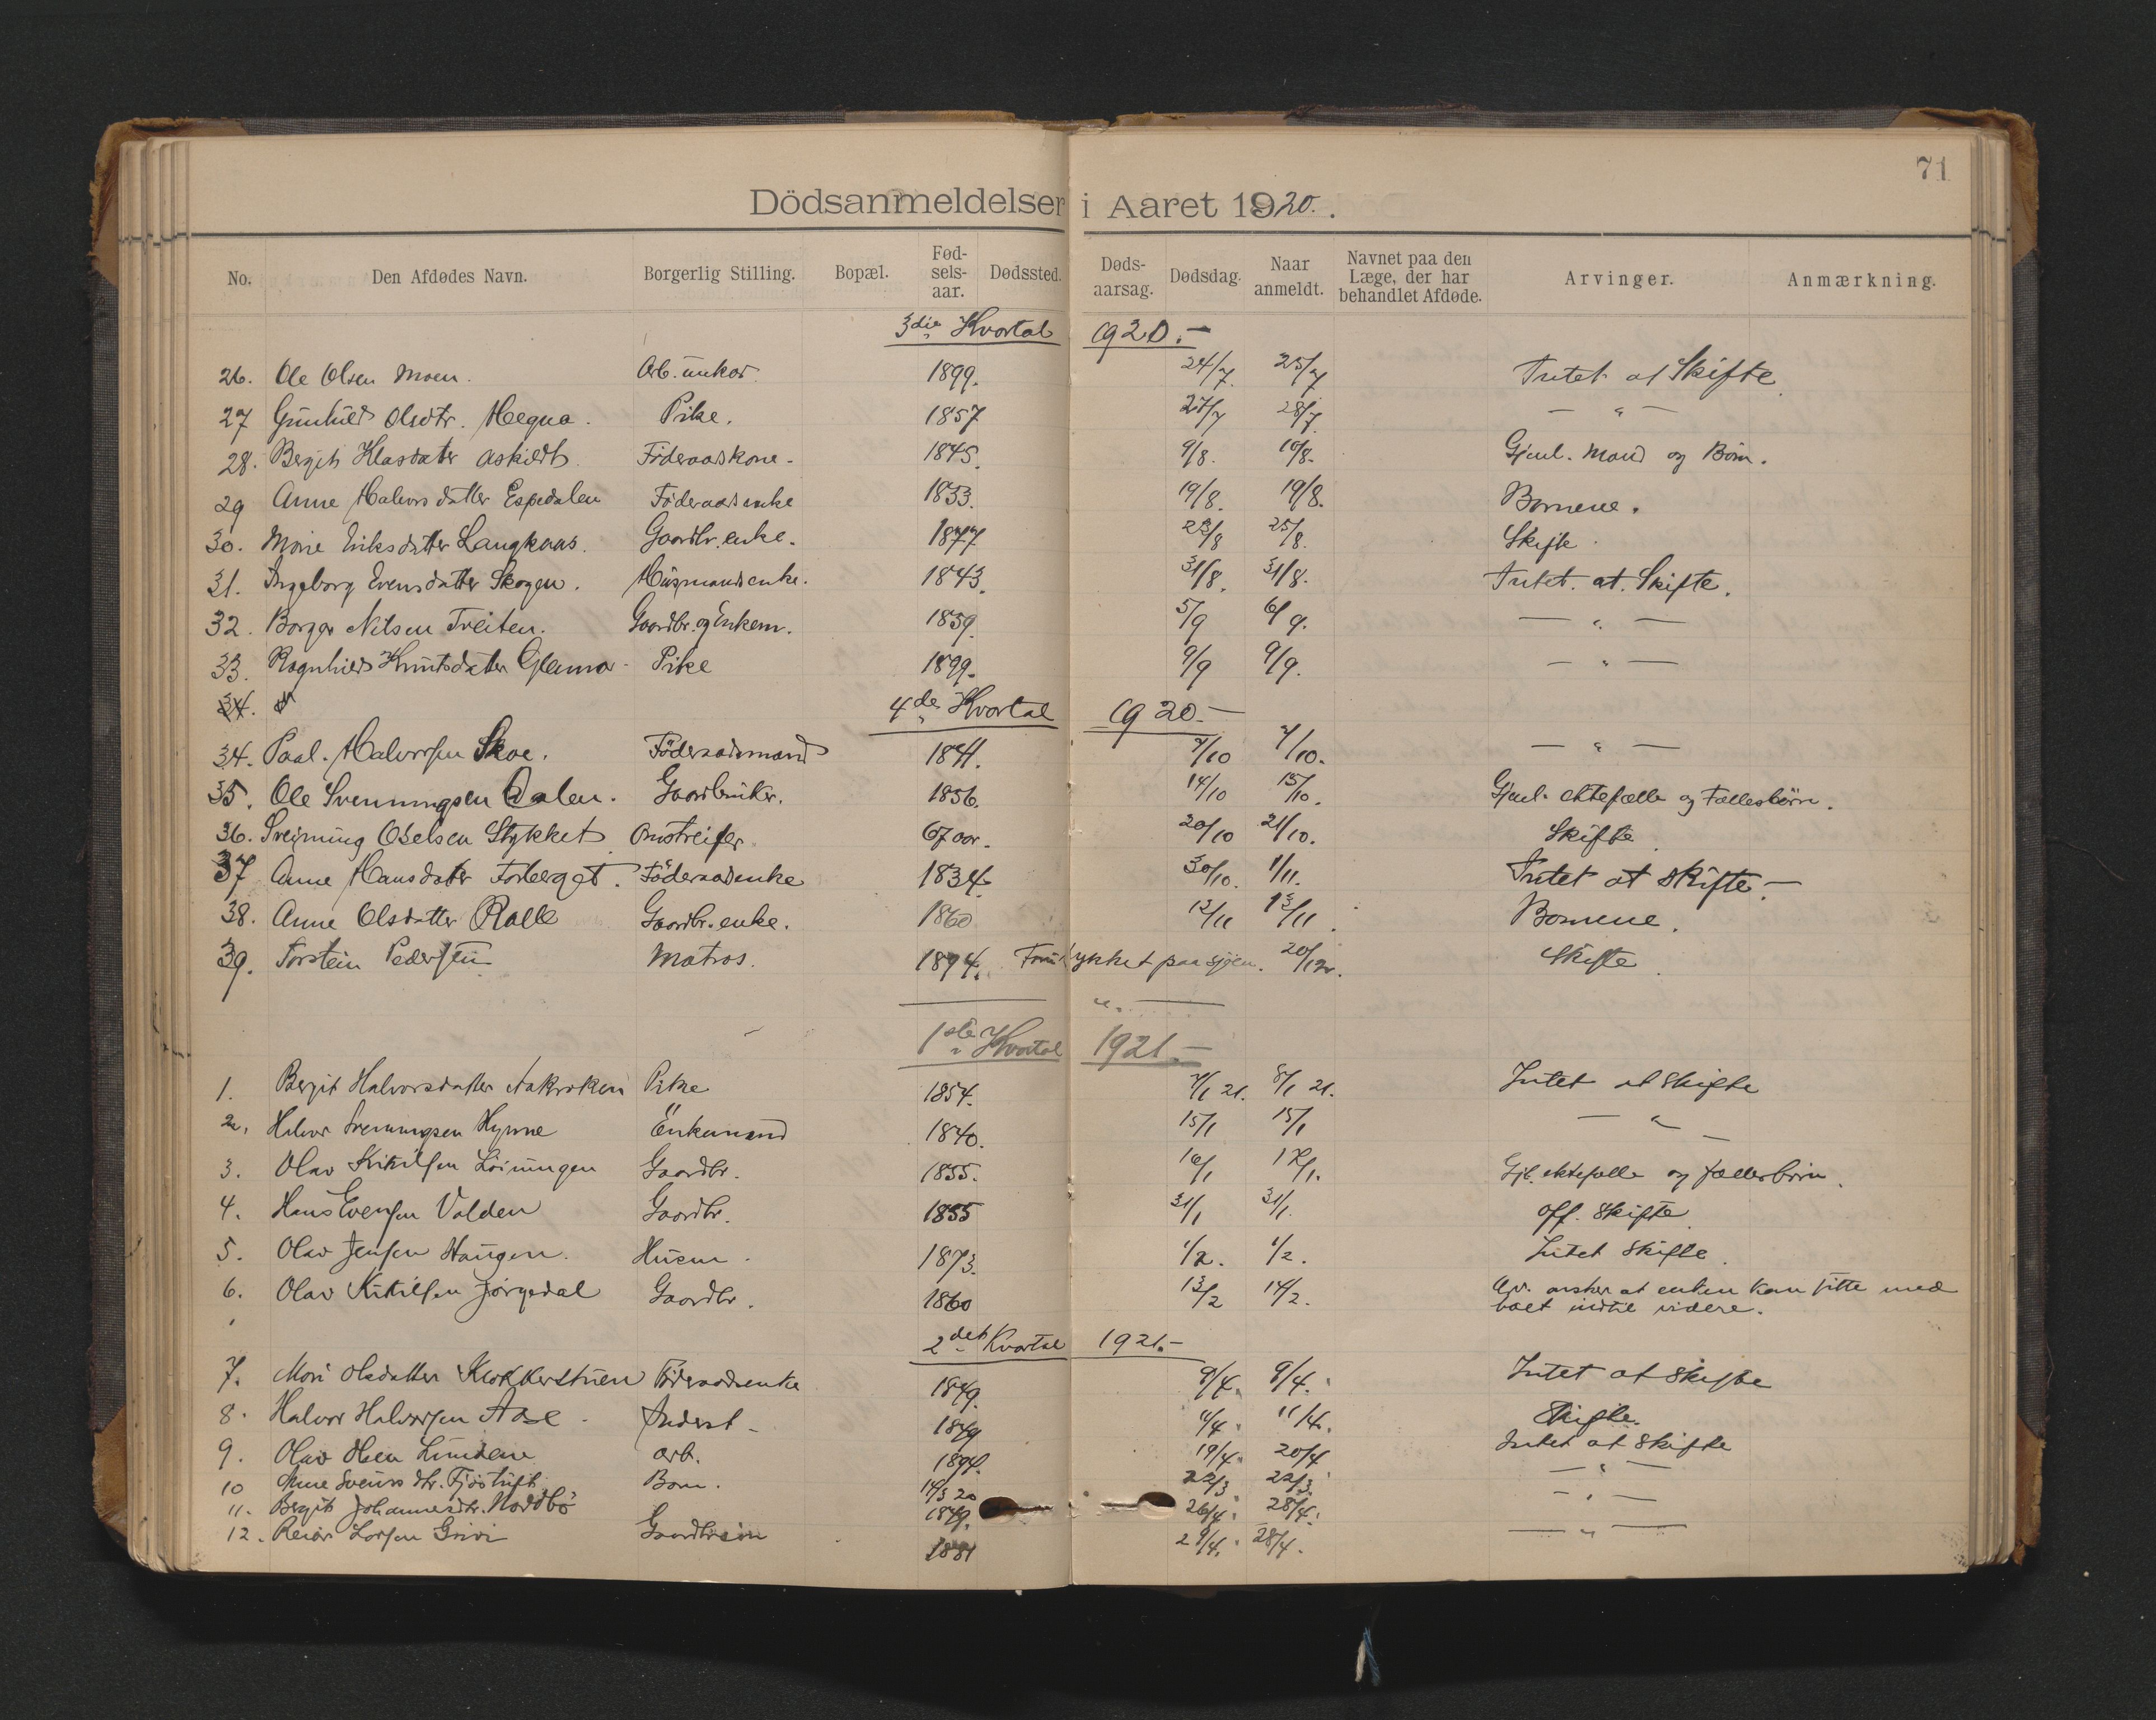 71
Dödsanmeldelser i Aaret 1920.
No. Den Afdødes Navn. Borgerlig Stilling. Bopæl. Fød-sels-aar. Dødssted. Døds-aarsag. Dødsdag. Naar anmeldt. Navnet paa den Læge, der har behandlet Afdøde. Arvinger. Anmærkning.
3die Kvartal 1920.-
26. Ole Olsen Moen. Arb. unkar. 1899. 24/7. 25/7 Intet at Skifte
27 Gunhild Olsdtr. Hegna. Pike. 1857 27/7 28/7. — " —
28. Bergit Klasdatter Askildt. Föderaadskone. 1845. 9/8. 10/8. Gjenl. Mand og Börn.
29 Anne Halvorsdatter Espedalen Föderaadsenke 1853. 19/8. 19/8. Børnene.
30. Marie Eriksdatter Langkaas. Gaardbr. enke. 1877 23/8 25/8. Skifte.
31. Ingeborg Evensdatter Skogen. Husmandsenke. 1843. 31/8. 31/8. Intet. at. Skifte.
32. Borger Nilsen Treiten. Gaardbr. og Enkem. 1859. 5/9 6/9. — " —
33. Ragnhild Knutsdatter Glama Pike 1899. 9/9 9/9. — " —
34.
4de Kvartal 1920.-
34. Paal. Halvorsen Skoe. Föderaadsmand 1841. 7/10 7/10. — " —
35. Ole Svenningsen Dalen. Gaardbruker. 1856. 14/10 15/10. Gjenl. ektefælle og Fællesbörn.
36. Sveinung Olsen Stykket Omstreifer. 67 aar. 20/10 21/10. Skifte
37 Anne Hansdatter Forberget. Föderaadsenke 1834. 30/10. 1/11. Intet at skifte.-
38. Anne Olsdatter Ralle Gaardbr. enke. 1860 12/11 13/11. Børnene.
39. Torstein Pedersen Matros. 1894. Forulykket paa sjøen. 20/12. Skifte
— " —
1ste Kvartal 1921.-
1. Bergit Halvorsdatter Aakroken Pike 1854. 7/1 21. 8/1 21. Intet at skifte
2. Halvor Svenningsen Hynne Enkemand 1840. 15/1 15/1 — " —
3. Olav Kitilsen Löiningen Gaardbr. 1855. 16/1 18/1. Gjl. ektefælle og fællesbörn.
4. Hans Evensen Valden Gaardbr. 1855 31/1 31/1. Off. skifte
5. Olav Jensen Haugen. Husm. 1873. 1/2. 1/2. Intet skifte
6. Olav Kitilsen Jörgedal Gaardbr. 1860 13/2 14/2. Arv. ønsker at enken kan sitte med
boet indtil videre.
2det Kvartal 1921.-
7. Mari Olsdatter Klokkerstuen Föderaadsenke 1849. 8/4. 8/4. Intet at skifte
8. Halvor Halvorsen Aase Inderst 1849 11/4. Skifte.
9. Olav Lunden arb. 1894. 19/4. 20/4 Intet at skifte
10 Anne Sveins dtr. Fjöstuft Barn. 14/3 20 22/3 22/3. — " —
11. Bergit Johannesdtr. Nordbö 1849. 26/4. 28/4. — " —
12. Reiar Larsen Grivi Gaardbr.sön 1881 28/4. — " —